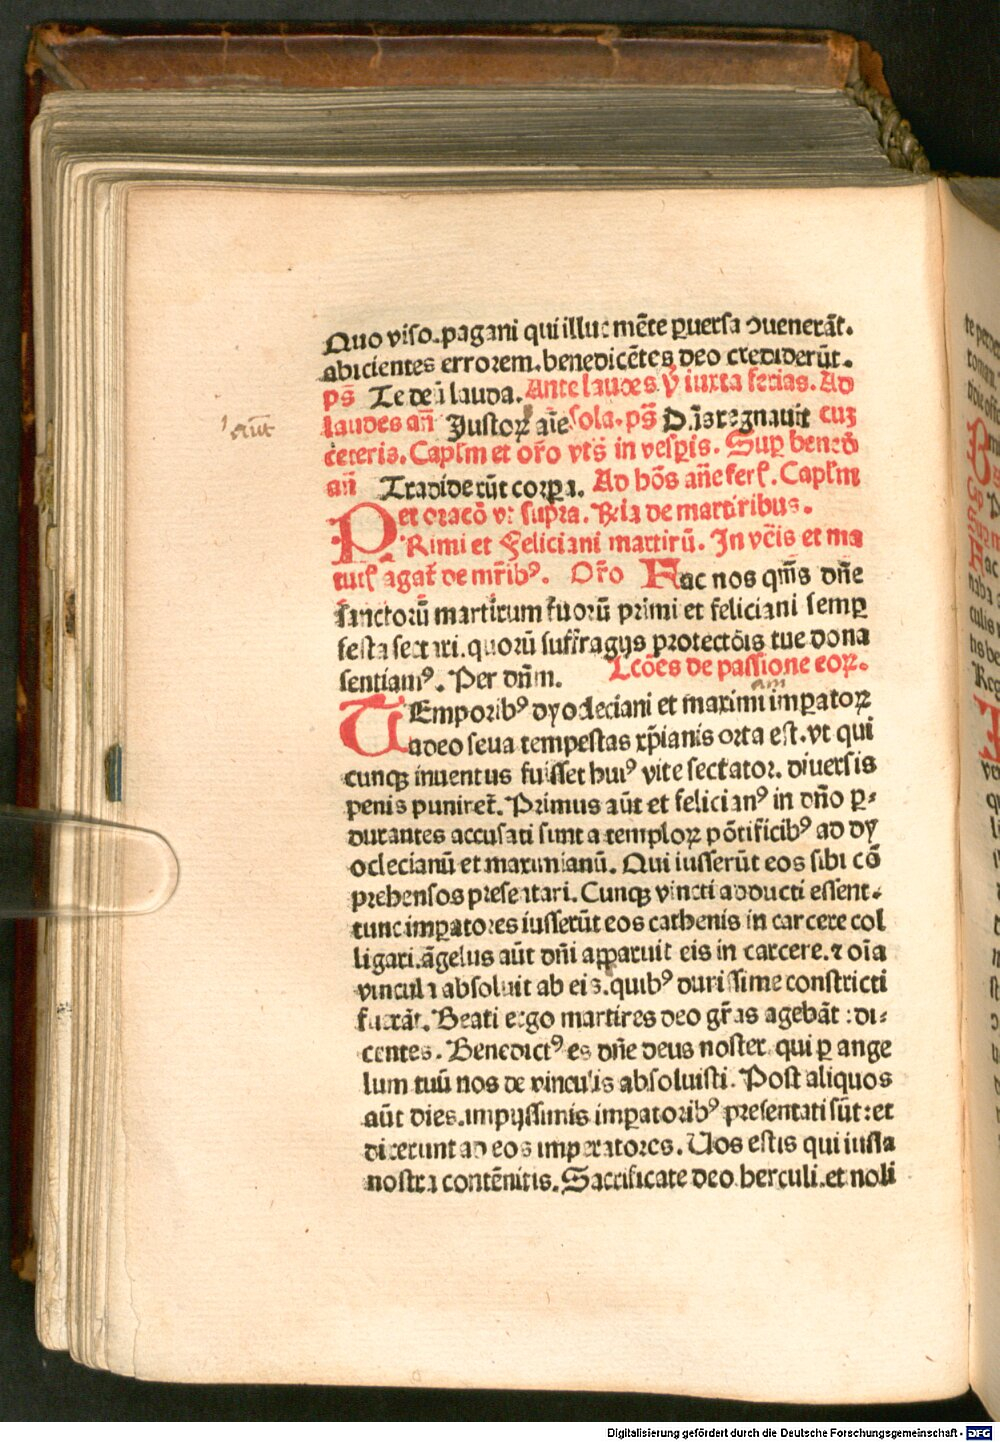 Quo viso.pagani qui illuc mẽte ꝑuersa ↄuenerãt.
abicientes errorem.benedicẽtes deo crediderũt.
ps̃ Te deũ lauda. Ante laudes ℣ iuxta ferias. Ad
laudes añ Justoꝝ aĩe sola.ps̃ Dñs regnauit cuꝫ
ceteris. Capl'm et or̃o vts̃ in vesꝑis. Suꝑ bened̃
añ Tradiderũt corꝑa. Ad hõs añe ferl'. Capl'm
et oracõ vt supra. R̃lia de martiribus.
PRimi et Feliciani martirũ. In vc̃is et ma
tutl' agat̃ de mr̃ibꝰ. Or̃o Hac nos qm̃s dñe
sanctorũ martirum tuorũ primi et feliciani semꝑ
festa sectari.quorũ suffragijs protectõis tue dona
sentiamꝰ. Per dñm. Lcões de passione eoꝝ.
am
TEmporibꝰ dyocleciani et maximi imꝑatoꝝ
adeo seua tempestas xp̃ianis orta est.vt qui
cunqꝫ inuentus fuisset huiꝰ vite sectator. diuersis
penis puniret̃. Primus aũt et felicianꝰ in dño ꝑ-
durantes accusati sunt a temploꝝ põtificibꝰ ad dy
oclecianũ et maximianũ. Qui iusserũt eos sibi cõ
prehensos presentari. Cunqꝫ vincti adducti essent.
tunc imꝑatores iusserũt eos cathenis in carcere col
ligari.ãgelus aũt dñi apparuit eis in carcere.⁊ oĩa
vincula absoluit ab eis.quibꝰ durissime constricti
fuerãt. Beati ergo martires deo gr̃as agebãt:di-
centes. Benedictꝰ es dñe deus noster.qui ꝑ ange
lum tuũ nos de vinculis absoluisti. Post aliquos
aũt dies.impijssimis imꝑatoribꝰ presentati sũt:et
dicerunt ad eos imperatores. Uos estis qui iussa
nostra contẽnitis. Sacrificate deo herculi.et noli
aũt
Digitalisierung gefördert durch die Deutsche Forschungsgemeinschaft - DFG